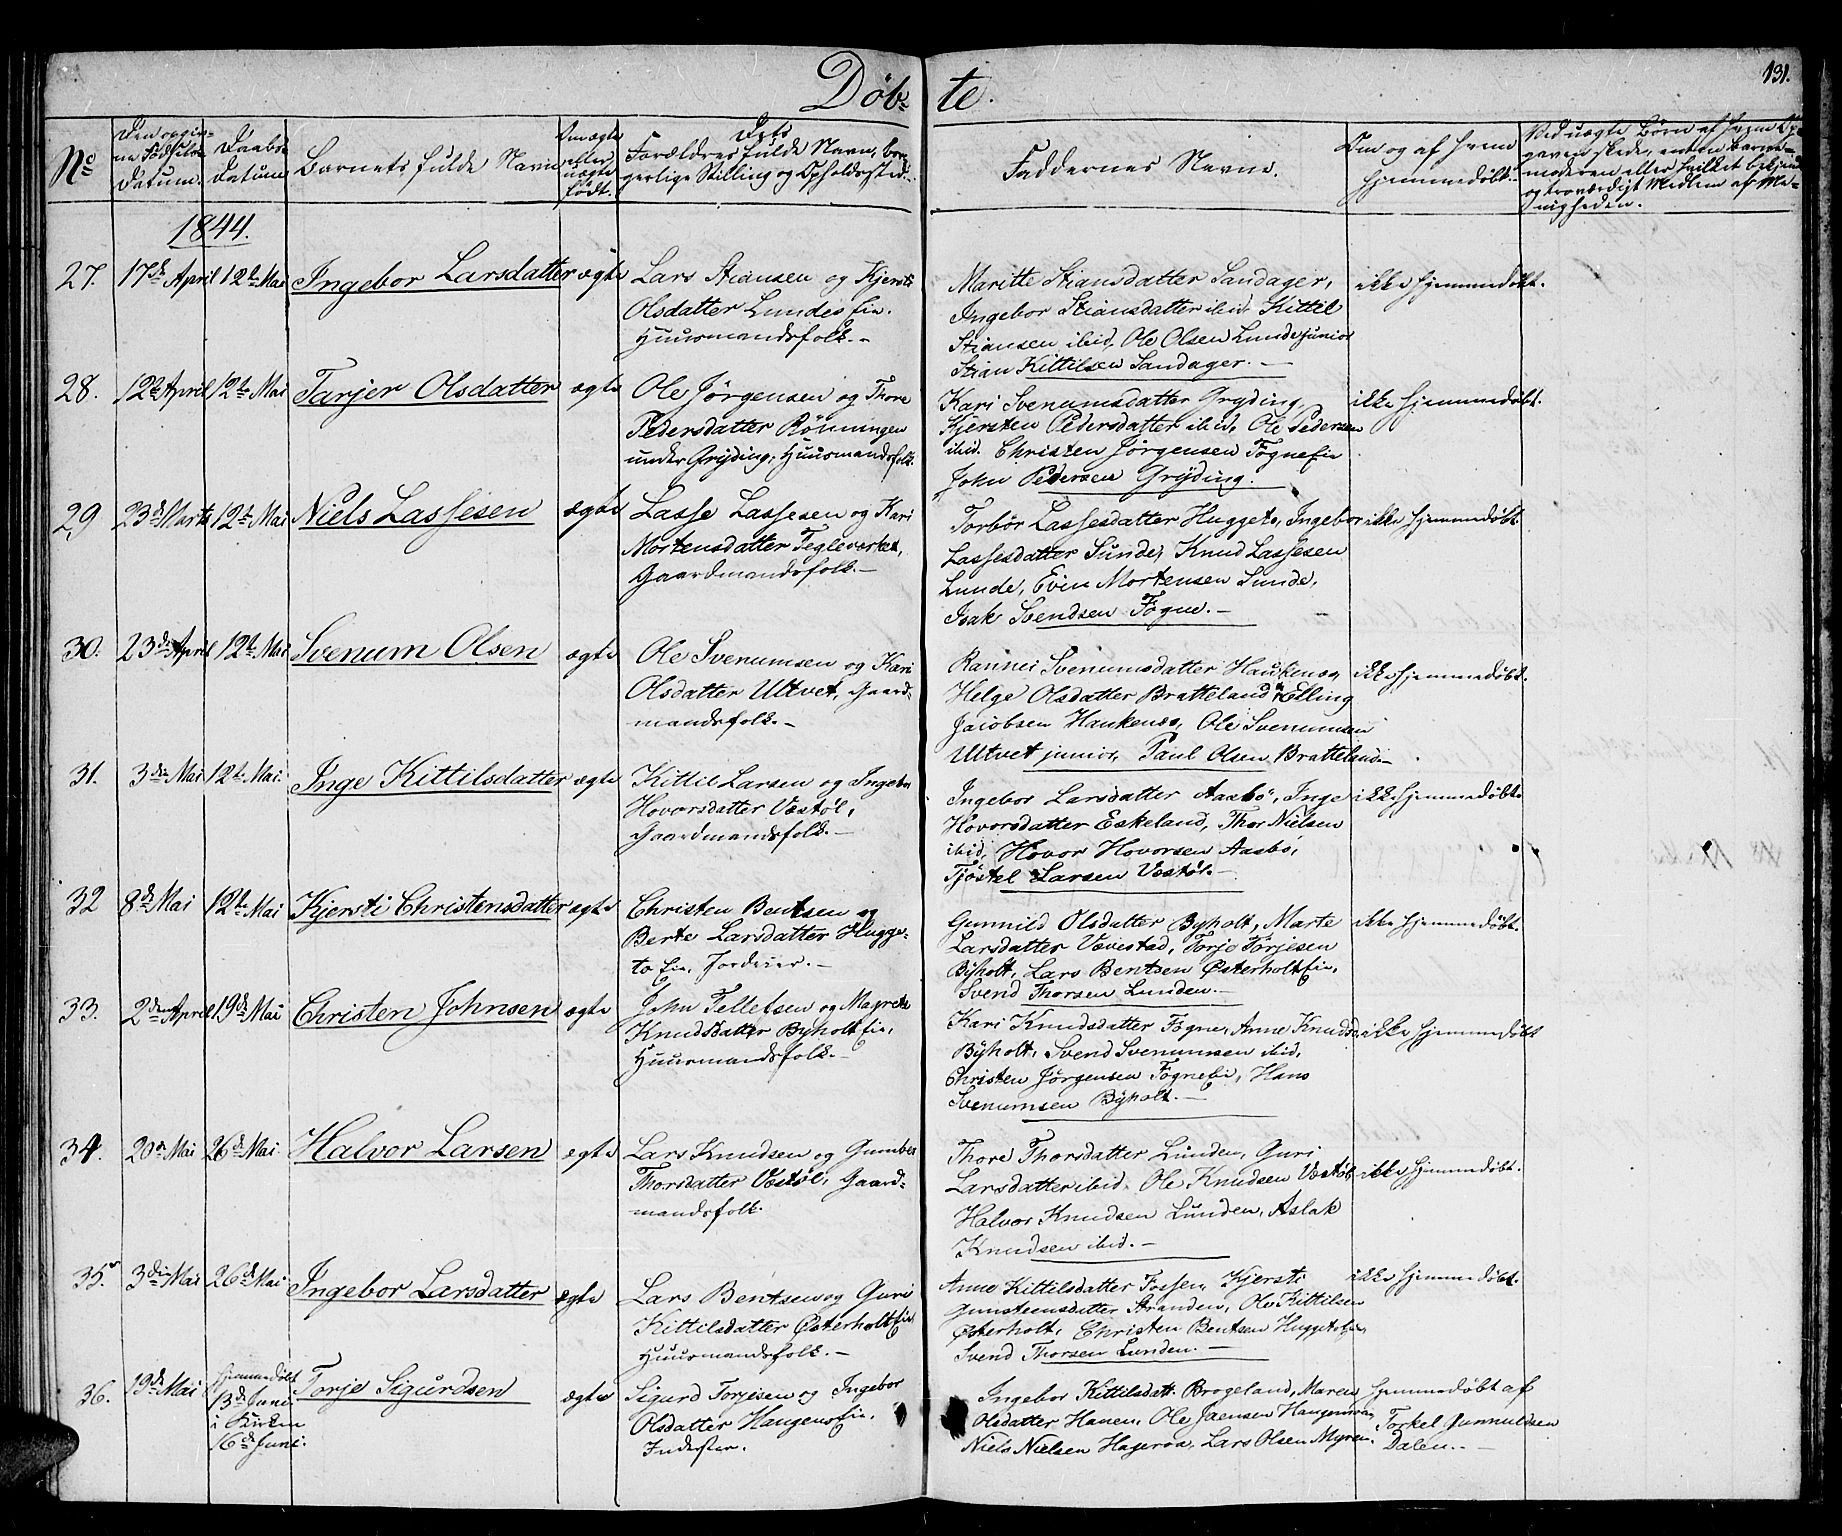 Døb-te.
131.
No
Den opgiv-
ne Fødsels-
Datum.
Daabs-
Datum
Barnets fulde Navn
Om ægte
eller
uægte
født.
Dets
Forældres fulde Navn, bor-
gerlige Stilling og Opholdssted.
Faddernes Navne.
Om og af hvem
hjemmedøbt.
Ved uægte Børn af hvem Op-
gaven skede, enten Barne-
moderen eller hvilket bekjendt
og troværdigt Medlem af Me-
nigheden.
1844.
27. 17de April 12te Mai Ingebor Larsdatter ægte
Lars Stiansen og Kjersti
Olsdatter Lundes Eie.
Huusmandsfolk.-
Maritte Stiansdatter Sandager,
Ingebor Stiansdatter ibid, Kittil
Stiansen ibid, Ole Olsen Lunde junior
Stian Kittilsen Sandager.-
ikke hjemmedøbt.
28. 12te April 12te Mai Tarjer Olsdatter ægte
Ole Jørgensen og Thore
Pedersdatter Rönningen
under Gryding, Huusmandsfolk.
Kari Svenumsdatter Gryding,
Kjersten Pedersdatter ibid, Ole Pedersen
ibid. Christen Jörgensen Fogne Eie
John Pedersen Gryding.
ikke hjemmedøbt.
29 23de Marts 12te Mai Niels Lassesen ægte
Lasse Lassesen og Kari
Mortensdatter Tegleværket,
Gaardmandsfolk.-
Torbör Lassesdatter Huggeto, Ingebor
Lassesdatter Sunde, Knud Lassesen
Lunde, Even Mortensen Sunde,
Isak Svendsen Fogne.-
ikke hjemmedøbt
30. 23de April 12te Mai Svenum Olsen ægte
Ole Svenumsen og Kari
Olsdatter Ultvet, Gaard-
mandsfolk.-
Rannei Svenumsdatter Haukenæs
Helge Olsdatter Bratteland, Elling
Jacobsen Haukenæs, Ole Svenumsen
Ultvet junior, Paul Olsen Bratteland-
ikke hjemmedøbt.
31. 3die Mai 12te Mai. Inge Kittilsdatter ægte
Kittil Larsen og Ingebor
Hovorsdatter Vestöl,
Gaardmandsfolk.-
Ingebor Larsdatter Aasbö, Inge
Hovorsdatter Eskeland, Thor Nielsen
ibid, Hovor Hovorsen Aasbø,
Tjöstel Larsen Vestöl.-
ikke hjemmedøbt.
32 8de Mai 12te Mai Kjersti Christensdatter ægte
Christen Bentsen og
Berte Larsdatter Hugge-
to Eie, Jordeier.-
Gunnild Olsdatter Byholt, Marte
Larsdatter Vævestad, Torjo Torjesen
Byholt, Lars Bentsen Østerholt Eie,
Svend Thorsen Lunden.-
ikke hjemmedøbt.
33. 2den April 19de Mai Christen Johnsen ægte
John Tellefsen og Magrete
Knudsdatter Byholt Eie,
Huusmandsfolk.-
Kari Knudsdatter Fogne, Anne Knudsd.
Byholt, Svend Svenumsen ibid,
Christen Jørgensen Fogne Ei, Hans
Svenumsen Byholt.-
ikke hjemmedøbt
34. 20de Mai 26de Mai. Halvor Larsen ægte
Lars Knudsen og Gunnbor
Thorsdatter Vestøl, Gaard-
mandsfolk.
Thore Thorsdatter Lunden, Guri
Larsdatter ibid. Ole Knudsen Vestøl
Halvor Knudsen Lunden, Aslak
Knudsen ibid.-
ikke hjemmedøbt.
35. 3die Mai 26de Mai Ingebor Larsdatter ægte
Lars Bentsen og Guri
Kittilsdatter Østerholt Eie,
Huusmandsfolk.-
Anne Kittilsdatter Fossen, Kjersti
Gunsteensdatter Stranden, Ole Kittilsen
Østerholt, Christen Bentsen Huggeto Eie,
Svend Thorsen Lunden.-
ikke hjemmedøbt.
36. 19de Mai
hjemmedøbt
13de Juni
i Kirken
16de Juni.
Torje Sigurdsen ægte
Sigurd Torjesen og Ingebor
Olsdatter Haugenes Eie,
Inderster.
Ingebor Kittilsdatt. Brogeland, Maren
Olsdatter Hanen, Ole Jaensen
Niels Nielsen Lars Olsen Myren.
hjemmedøbt af
Torkel Gunnuldsen
Dalen.-